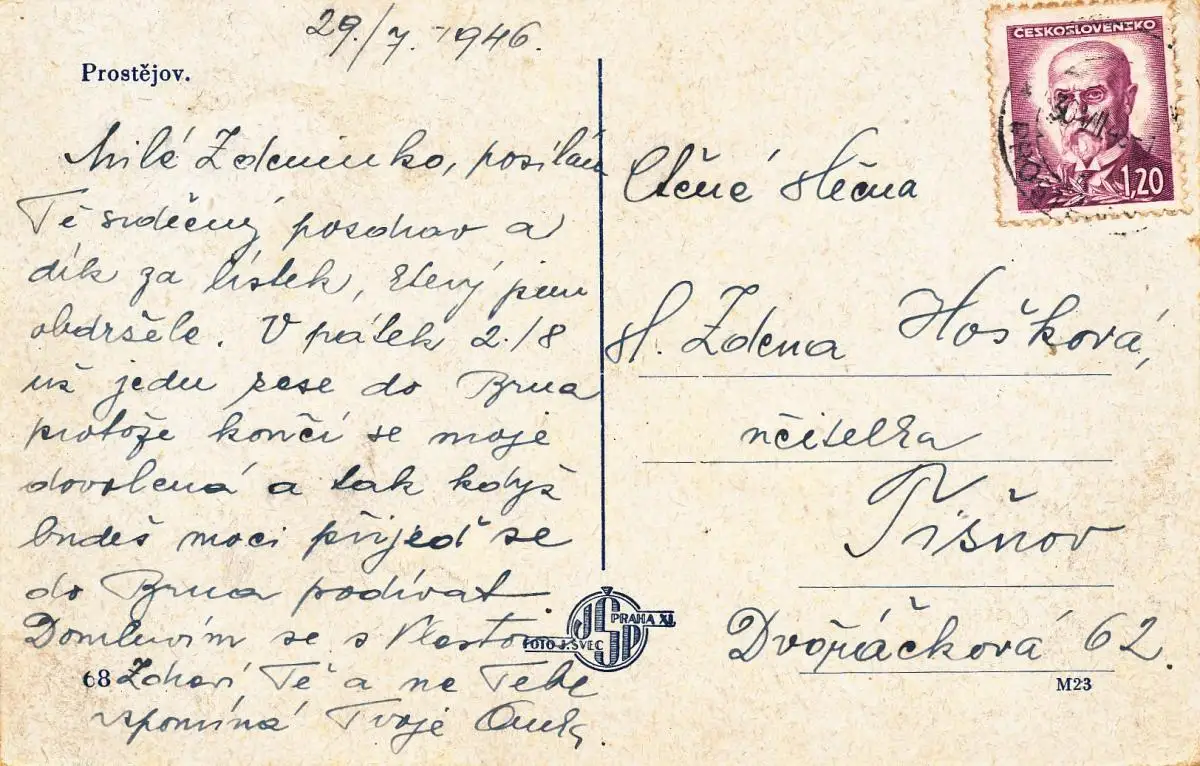 29./7.-1946.
Prostějov.
Milá Zdeninko, posílám
Ti srdečný pozdrav a
dík za lístek, který jsem
obdržela. V pátek 2./8
už jedu zase do Brna
protože končí se moje
dovolená a tak když
budeš moci přijeď se
do Brna podívat.
Domluvím se s Vlastou.
Zdraví Tě a na Tebe
vzpomíná Tvoje
68
ČESKOSLOVENSKO
1,20
Ctěná slečna
sl. Zdena Hošková,
učitelka
Tišnov
Dvořáčkova 62.
JSP
PRAHA XI.
FOTO J. ŠVEC
M23